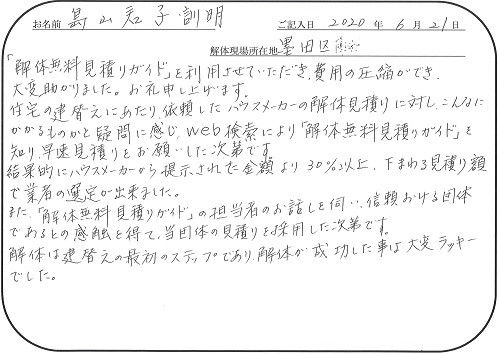 お名前 島山君子・訓明 ご記入日 2020 年 6 月 21 日
解体現場所在地 墨田区
「解体無料見積りガイド」を利用させていただき、費用の圧縮ができ、
大変助かりました。お礼申し上げます。
住宅の建替えにあたり、依頼したハウスメーカーの解体見積りに対し、こんなに
かかるものかと疑問に感じ、web検索により「解体無料見積りガイド」を
知り、早速見積りをお願いした次第です。
結果的にハウスメーカーから提示された金額より30%以上、下まわる見積り額
で業者の選定が出来ました。
また、「解体無料見積りガイド」の担当者のお話しを伺い、信頼おける団体
であるとの感触を得て、当団体の見積りを採用した次第です。
解体は建替えの最初のステップであり、解体が成功した事は大変ラッキー
でした。